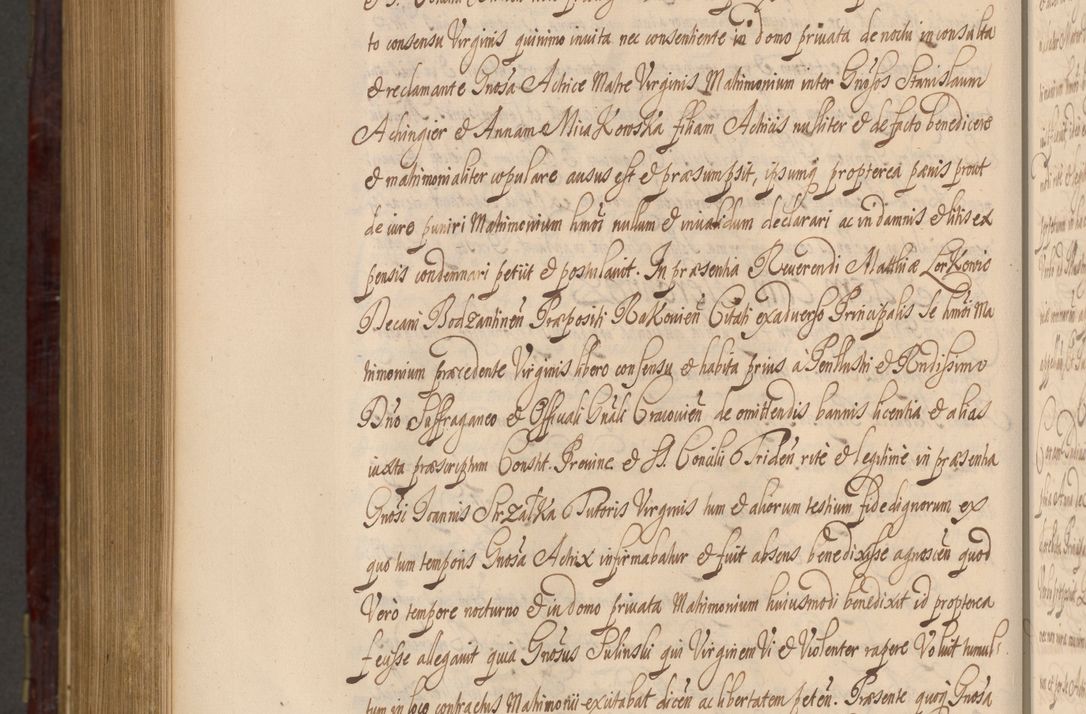 to consensu Virginis quinimo invita nec consentiente in domo privata de noctu inconsulta
& reclamante Gnosa Actrice Matre Virginis Matrimonium inter Gnosos Stanislaum
Achingier & Annam Mira Kowska filiam Actricis nulliter & de facto benedicere
& matrimonialiter copulare ausus est & præsumpsit, ipsumq propterea pænis prout
de iure puniri Matrimonium hmoi nullum & invalidum declarari ac in damnis & litis ex
pensis condemnari petiit & postulavit. In præsentia Reverendi Matthiæ Lorkowic
Decani Bodzantinen Præpositi Rakovien Citati ex adverso Principalis se hmoi Ma
trimonium præcedente Virginis libero consensu & habita prius à Perillustri & Rndissimo
Dno Suffraganeo & Officiali Gnali Cracovien de omittendis bannis licentia & alias
iuxta præscriptum Constit. Provinc. & S. Concilii Triden ritè & legitimè in præsentia
Gnosi Joannis Skrzatka Tutoris Virginis tum & aliorum testium fide dignorum ex
quo tum temporis Gnosa Actrix infirmabatur & fuit absens benedixisse agnoscen quod
Vero tempore nocturno & in domo privata Matrimonium huiusmodi benedixit id propterea
fecisse allegavit quia Gnosus Sulinski qui Virginem Vi & Violenter rapere Voluit tumul:
tum in loco contractus Matrimonii excitabat dicen ac libertatem peten. Præsente quoq Gnosa